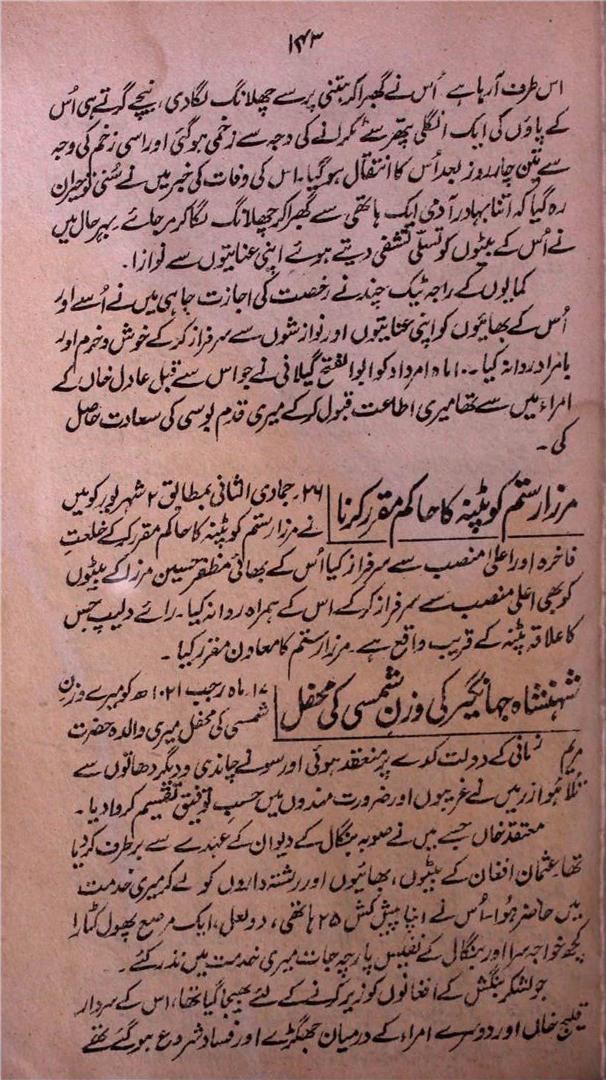 ۱۴۳
اس طرف آرہا ہے اُس نے گھبرا کر ہتنی پر سے چھلانگ لگا دی، نیچے گرتے ہی اُس
کے پاؤں کی ایک انگلی پتھر سے ٹکرانے کی وجہ سے زخمی ہو گئی اور اسی زخم کی وجہ
سے تین چار روز بعد اُس کا انتقال ہو گیا۔ اس کی وفات کی خبر میں نے سُنی تو حیران
رہ گیا کہ اتنا بہادر آدمی ایک ہاتھی سے گھبرا کر چھلانگ لگا کر مر جائے۔ بہر حال میں
نے اُس کے بیٹوں کو تسلّی تشفی دیتے ہوئے اپنی عنایتوں سے نوازا۔
کمایوں کے راجہ ٹیک چند نے رخصت کی اجازت چاہی میں نے اُسے اور
اُس کے بھائیوں کو اپنی عنایتوں اور نوازشوں سے سرفراز کر کے خوش و خرم اور
بامراد روانہ کیا۔ ۱۰ ماہ امرداد کو ابوالفتح گیلانی نے جو اس سے قبل عادل خاں کے
امراء میں سے تھا میری اطاعت قبول کر کے میری قدم بوسی کی سعادت حاصل
کی۔
مرزا رستم کو پٹنہ کا حاکم مقرر کرنا
۲۶؍ جمادی الثانی بمطابق ۲ شہریور کو میں
نے مرزا رستم کو پٹنہ کا حاکم مقرر کر کے خلعت
فاخرہ اور اعلیٰ منصب سے سرفراز کیا اُس کے بھائی مظفر حسین مرزا کے بیٹوں
کو بھی اعلیٰ منصب سے سرفراز کر کے اس کے ہمراہ روانہ کیا۔ رائے دلیپ جس
کا علاقہ پٹنہ کے قریب واقع ہے۔ مرزا رستم کا معاون مقرر کیا۔
شہنشاہ جہانگیر کی وزن شمسی کی محفل
۱۷؍ ماہ رجب ۱۰۲۱ھ کو میرے وزنِ
شمسی کی محفل میری والدہ حضرت
مریم زمانی کے دولت کدے پر منعقد ہوئی اور سونے چاندی و دیگر دھاتوں سے
تُلا ہُوا زر میں نے غریبوں اور ضرورت مندوں میں حسبِ توفیق تقسیم کروا دیا۔
معتقد خاں جسے میں نے صوبہ بنگال کے دیوان کے عہدے سے برطرف کر دیا
تھا عثمان افغان کے بیٹوں، بھائیوں اور رشتہ داروں کو لے کر میری خدمت
میں حاضر ہُوا۔ اُس نے اپنا پیش کش ۲۵ ہاتھی، دو لعل، ایک مرصع پھول کٹارا
کچھ خواجہ سرا اور بنگال کے نفیس پارچہ جات میری خدمت میں نذر کئے۔
جو لشکر بنگش کے افغانوں کو زیر کرنے کے لئے بھیجا گیا تھا، اس کے سردار
قلیج خاں اور دوسرے امراء کے درمیان جھگڑے اور فساد شروع ہو گئے تھے